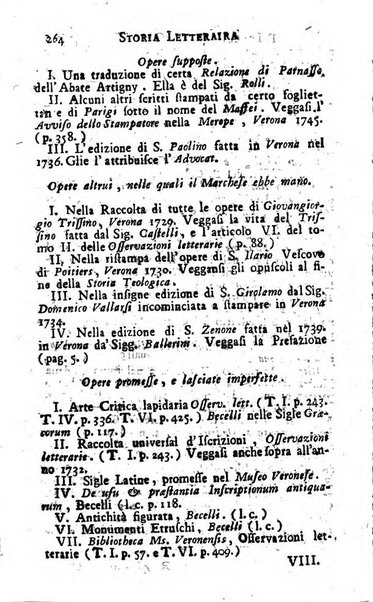 264 STORIA LETTERAIRA
Opere supposte.
I. Una traduzione di certa Relazione di Patnasso,
dell'Abate Artigny. Ella è del Sig. Rolli.
II. Alcuni altri scritti stampati da certo fogliet-
tan e di Parigi sotto il nome del Maffei. Veggasi l'
Avviso dello Stampatore nella Merope, Verona 1745.
(p. 358.)
III. L'edizione di S. Paolino fatta in Verona nel
1736. Glie l'attribuisce l'Advocat.
Opere altrui, nelle quali il Marchese ebbe mano.
I. Nella Raccolta di tutte le opere di Giovangior-
gio Trissino, Verona 1729. Veggasi la vita del Tris-
sino fatta dal Sig. Castelli, e l'articolo VI. del to-
mo II. delle Osservazioni letterarie (p. 88.)
II. Nella ristampa dell'opere di S. Ilario Vescovo
di Poitiers, Verona 1730. Veggansi gli opuscoli al fi-
ne della Storia Teologica.
III. Nella insigne edizione di S. Girolamo dal Sig.
Domenico Vallarsi incominciata a stampare in Verona
1734.
IV. Nella edizione di S. Zenone fatta nel 1739.
in Verona da'Sigg. Ballerini. Veggasi la Prefazione
(pag. 5.)
Opere promesse, e lasciate imperfette.
I. Arte Critica lapidaria Osserv. lett. (T. I. p. 243.
T. IV. p. 336. T. VI. p. 425.) Becelli nelle Sigle Græ-
corum (p. 117.)
II. Raccolta universal d'Iscrizioni, Osservazioni
letterarie. (T. I. p. 243.) Veggasi anche sopra all'an-
no 1732.
III. Sigle Latine, promesse nel Museo Veronese.
IV. De usu & præstantia Inscriptionum antiqua-
rum, Becelli (l. c. p. 118.)
V. Antichità figurata, Becelli (l. c.)
VI. Monumenti Etruschi, Becelli (l. c.)
VII. Bibliotheca Ms. Veronensis, Osservazioni let-
terarie (T. I. p. 57. e T. VI. p. 409.)
VIII.